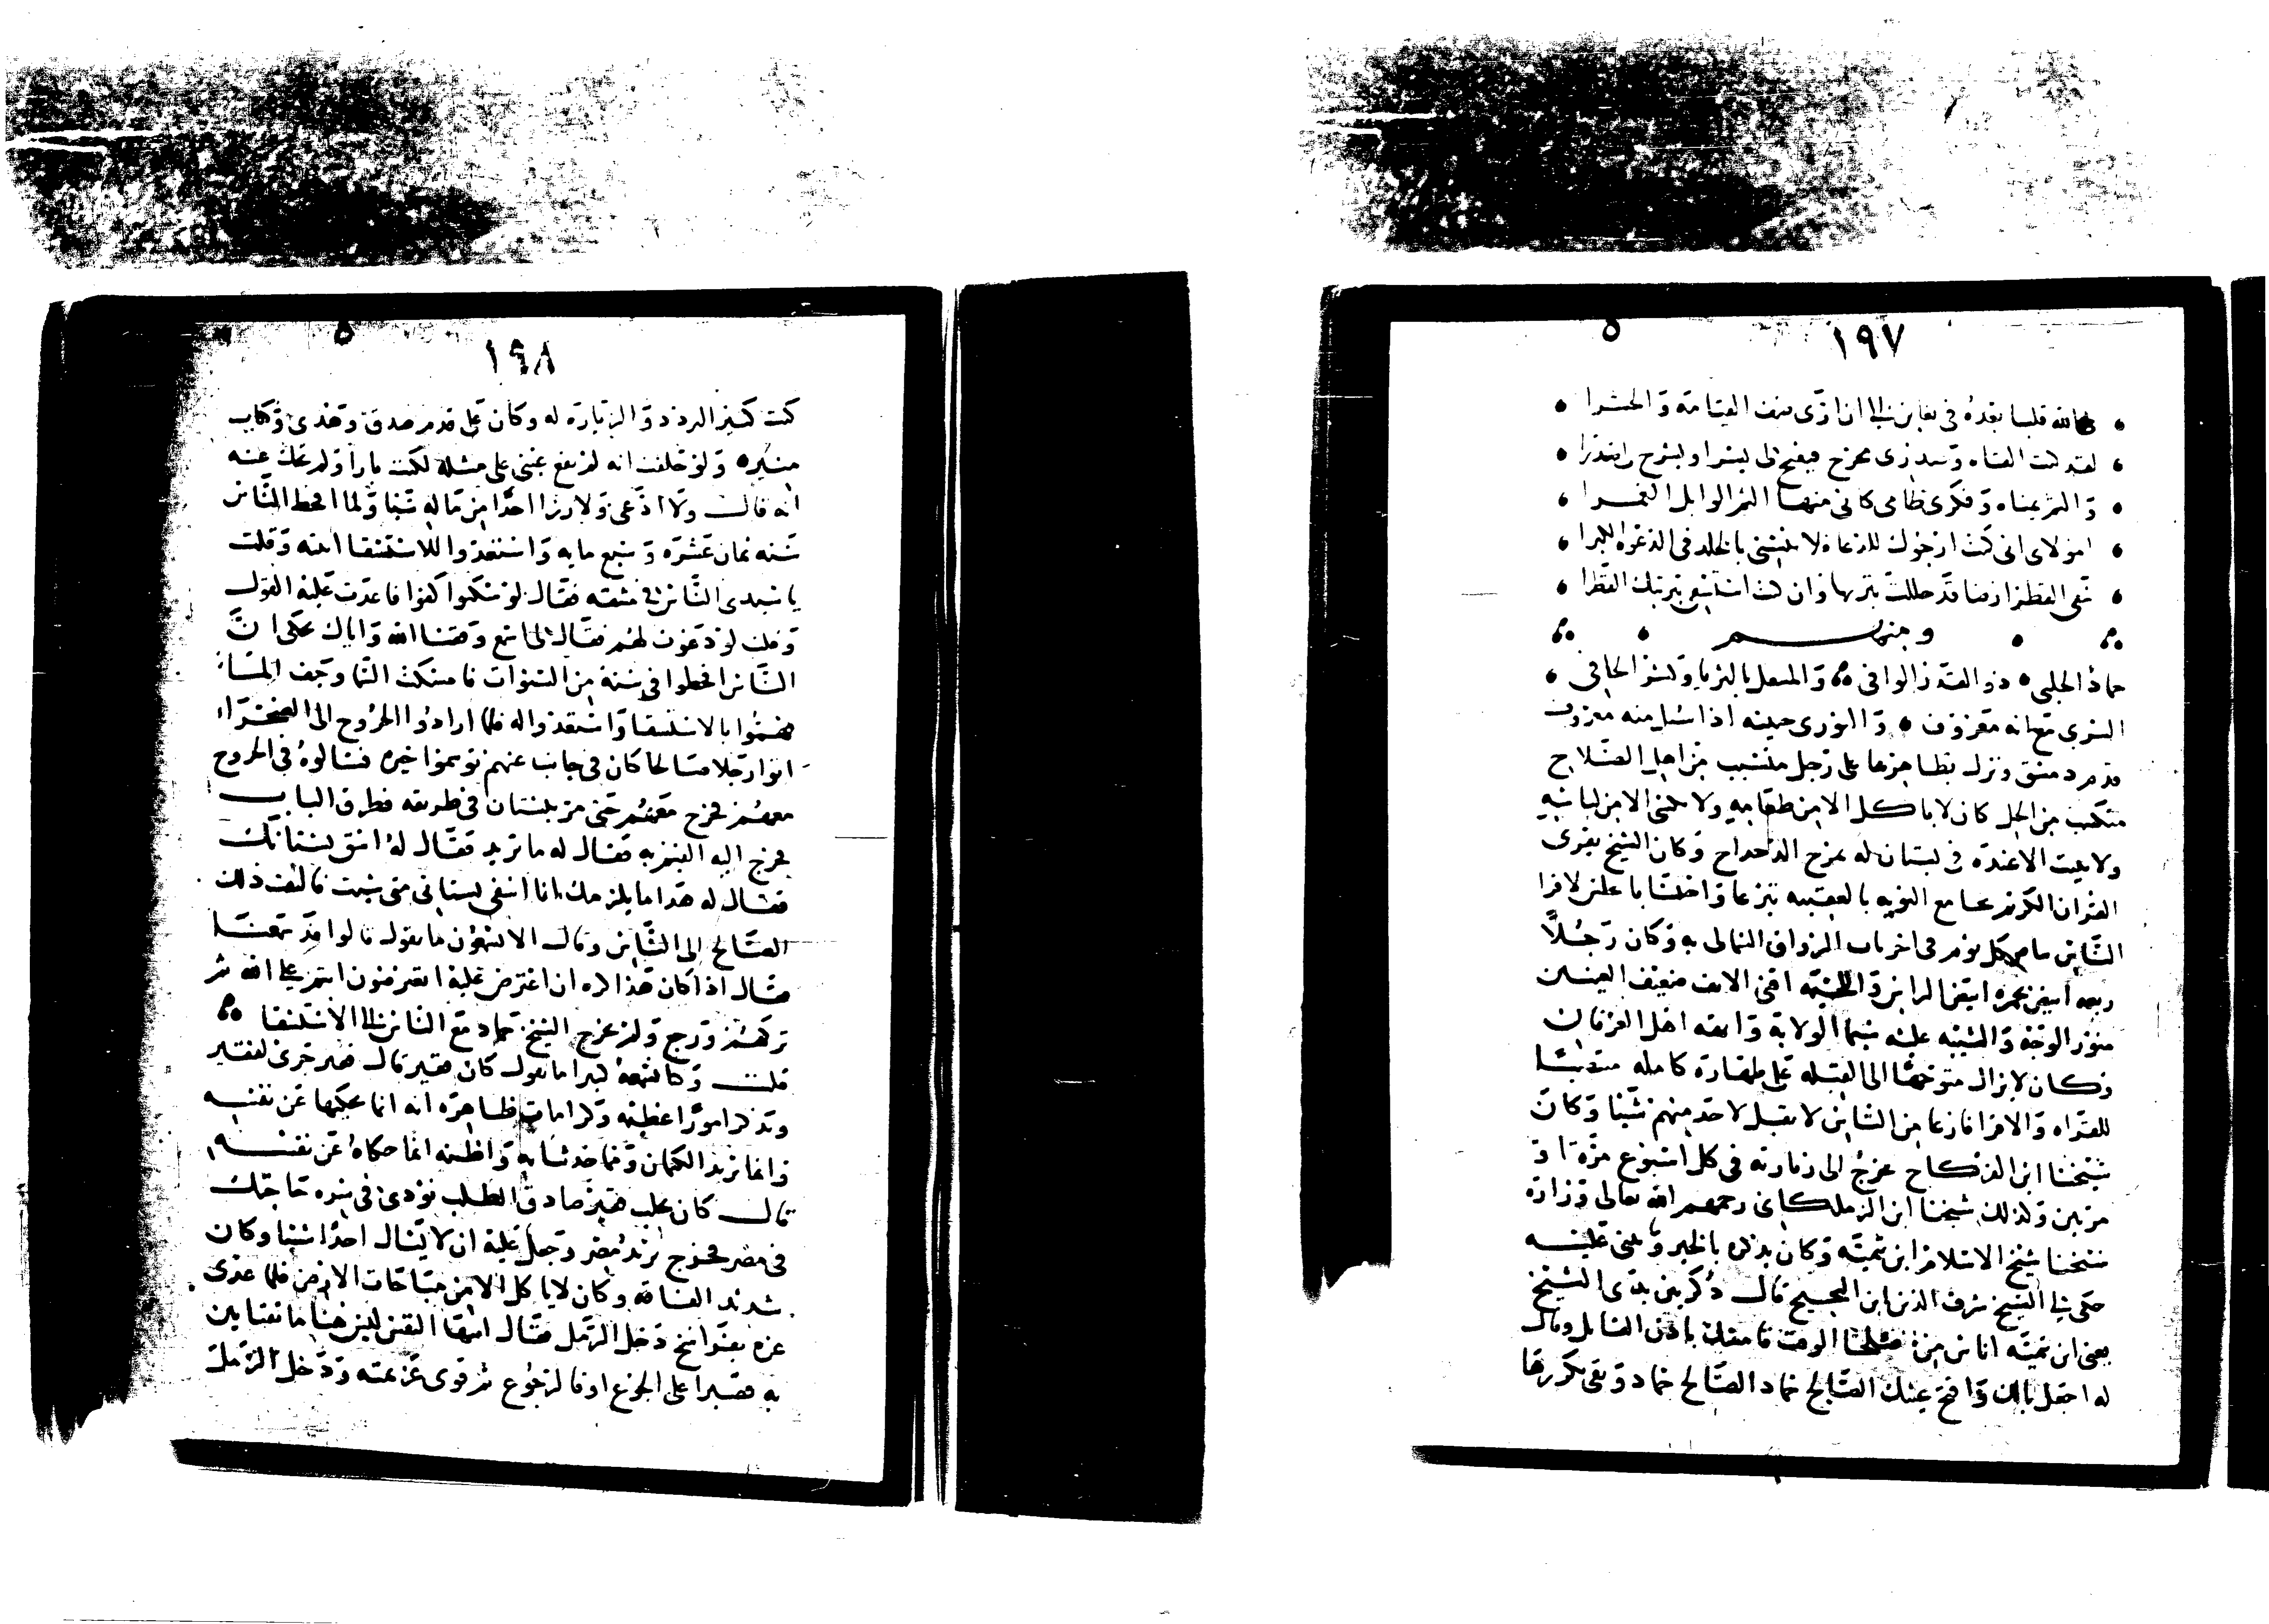 ١٩٧
لله قلبا بعده في تعابن الى ان ارى صف القيامة والحشرا
لقد كنت القاه وصدري محرج فيفتح لى بشرا ويشرح لى صدرا
والثم يمناه وفكرى ظامى كانى منها الثم الوابل الغمرا
امولاى انى كنت ارجوك للدعاء فلا تنسنى بالخلد فى الدعوة الكبرا
سقى القطر ارضا قد حللت بتربها وان كنت استسقى بتربتك القطرا
ومنهم
حماد الحلبي ذو القدر الوافي والمنعل بالثريا وبشر الحافى
السري مع انه معروف والنوري حينه اذا سئل منه معروف
قدم دمشق ونزل بظاهرها على رجل متسبب من اهل الصلاح
متكسب من الحل كان لا ياكل الا من طعامه ولا يكتسى الا من لباسه
ولا يبيت الا عنده في بستان له بمرج الدحداح وكان الشيخ يقرى
القران الكريم بجامع التوبه بالعقيبه تبرعا واحتسابا يجلس لاقرا
الناس كل يوم فى اخر باب الرواق الشمالى به وكان رجلاً
ربعه ابيض بحمره ابيض الراس واللحيه اقنى الانف ضعيف العينين
منور الوجه والشيبه عليه سيما الولاية وابهه اهل العرفان
وكان لا يزال متوجها الى القبله على طهارة كامله متدينا
للقراه والاقرا فارغا من الناس لا يقبل لاحد منهم شيئا وكان
شيخنا ابن الفركاح يخرج الى زيارته فى كل اسبوع مرة او
مرتين وكذلك شيخنا ابن الزملكاني رحمهم الله تعالى وزاره
شيخنا شيخ الاسلام ابن تيمية وكان يذكره بالخير ويثنى عليه
حكى لي الشيخ شرف الدين ابن النجيح قال ذكر بين يدى الشيخ
يعنى ابن تيمية اناس من صلحا الوقت القايل وقال
له اجعل بالك وافتح عينك الصالح حماد الصالح حماد وبقى يكررها
١٩٨
كنت كثير التردد والزيارة له وكان على قدم صدق وهدى وكتاب
منير ولو حلفت انه لم تقع عينى على مثله لكنت بارا ولم يحك عنه
انه قال ولا ادعى ولا رزا احدا من ماله شيئا ولما اقحط الناس
سنه ثمان عشره وسبع مايه واستعدوا للاستسقا اتيته وقلت
يا سيدى الناس في مشقه فقال لو شكوا كفوا فاعدت عليه القول
وقلت لو دعوت لهم فقال لى اسمع وفقنا الله واياك يحكى ان
الناس اقحطوا فى سنة من السنوات فامسكت السما وجف الماء
فهموا بالاستسقا واستعدوا له فلما ارادوا الخروج الى الصحراء
اتوا رجلا صالحا كان فى جانب عنهم توسموا خيره فسالوه فى الخروج
معهم فخرج معهم حتى مر ببستان في طريقه فطرق الباب
فخرج اليه القيم به فقال له ما تريد فقال له اسق بستانك
فقال له هذا ما يلزمك انا اسقى بستانى متى شيت فالتفت ذلك
الصالح الى الناس وقال الا تسمعون ما يقول قالوا قد سمعنا
فقال اذا كان هذا كره ان اعترض عليه اتعترضون انتم على الله ثم
تركهم ورجع ولم يخرج الشيخ حماد مع الناس الى الاستسقا
قلت وكان كثيرا ما يقول كان فقير قال فقير جرى لفقير
ويذكر امورا عظيمه وكرامات ظاهره انه انما يحكيها عن نفسه
وانما يريد الكتمان ومما حدثنا به واظنه انما حكاه عن نفسه
قال كان بحلب فقير صادق الطلب نودى فى سره حاجتك
فى مصر فخرج يريد مصر وجعل عليه ان لا يسال احدا شيئا وكان
شديد الفاقه وكان لا ياكل الا من مباحات الارض فلما عدى
غزه دخل الرمل فقال ايتها النفس ليس هنا ما تقتاتين
به فصبرا على الجوع او فالرجوع ثم قوى عزيمته ودخل الرمل